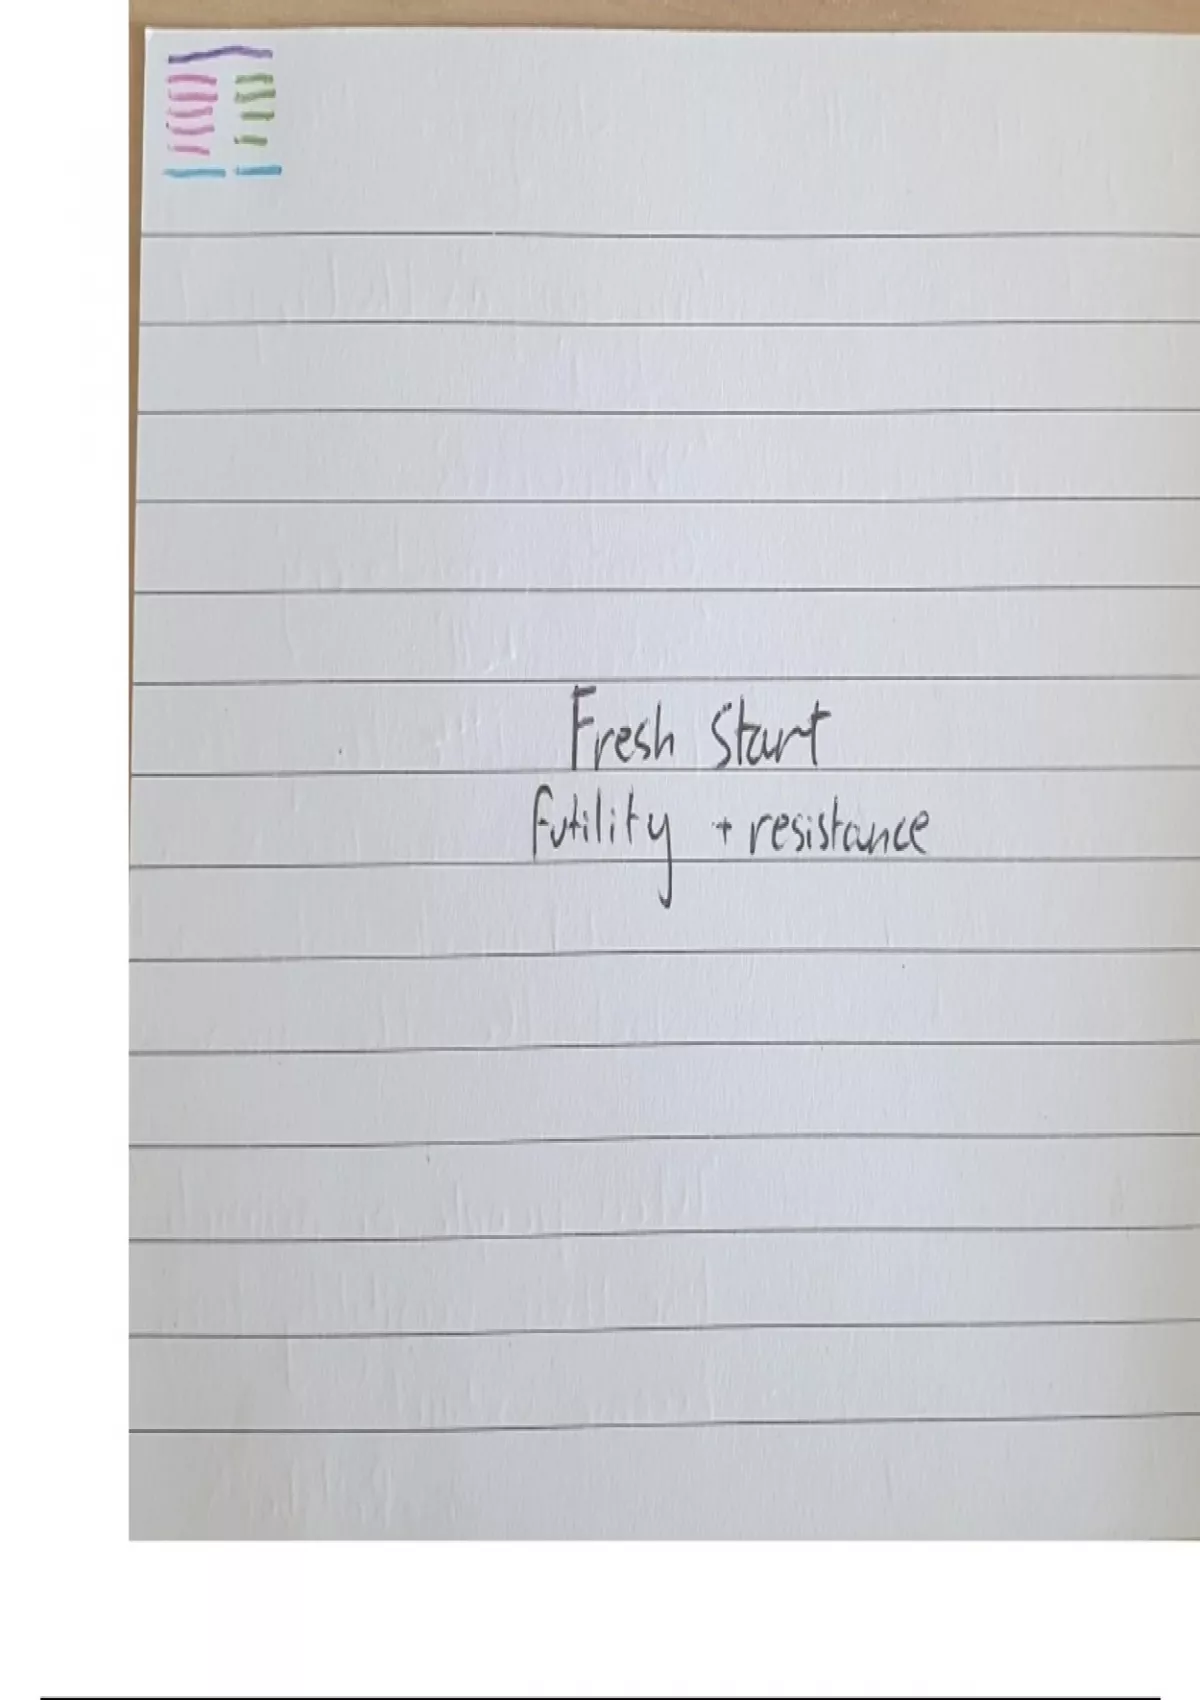 Fresh Start
futility + resistance